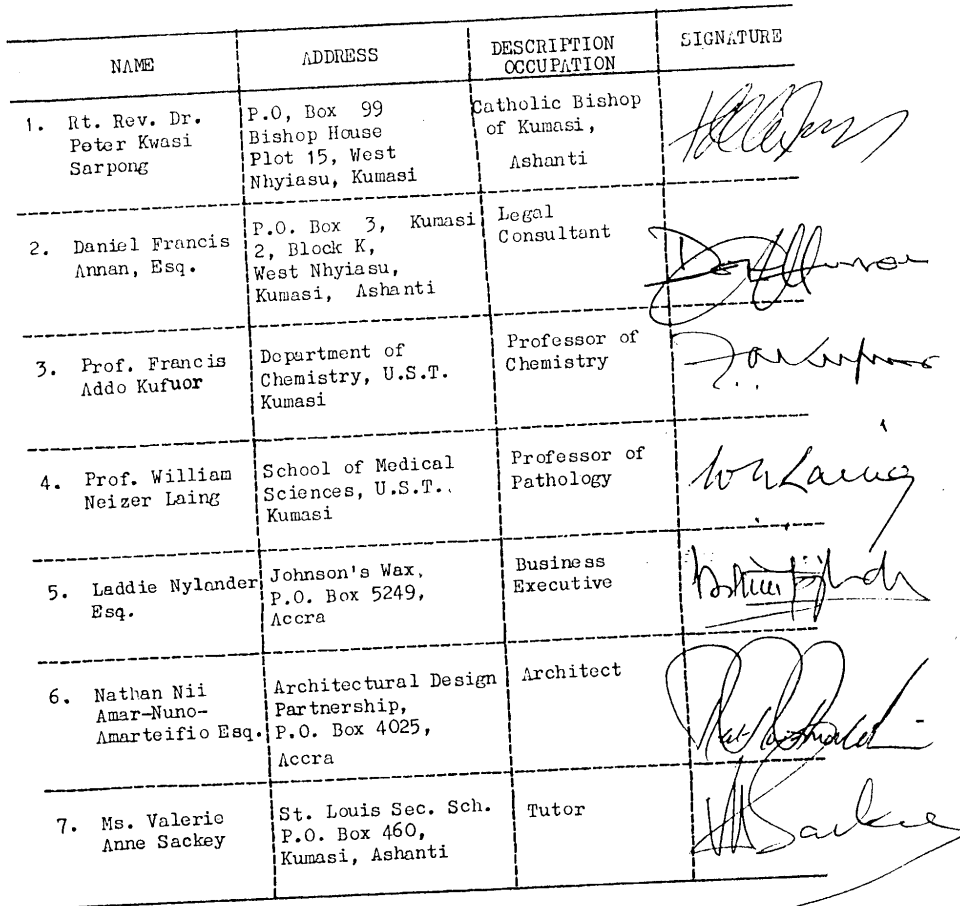 NAME
ADDRESS
DESCRIPTION
OCCUPATION
SIGNATURE
1. Rt. Rev. Dr.
Peter Kwasi
Sarpong
P.O, Box 99
Bishop House
Plot 15, West
Nhyiasu, Kumasi
Catholic Bishop
of Kumasi,
Ashanti
2. Daniel Francis
Annan, Esq.
P.O. Box 3, Kumasi
2, Block K,
West Nhyiasu,
Kumasi, Ashanti
Legal
Consultant
3. Prof. Francis
Addo Kufuor
Department of
Chemistry, U.S.T.
Kumasi
Professor of
Chemistry
4. Prof. William
Neizer Laing
School of Medical
Sciences, U.S.T.,
Kumasi
Professor of
Pathology
W N Laing
5. Laddie Nylander
Esq.
Johnson's Wax,
P.O. Box 5249,
Accra
Business
Executive
6. Nathan Nii
Amar-Nuno-
Amarteifio Esq.
Architectural Design
Partnership,
P.O. Box 4025,
Accra
Architect
7. Ms. Valerie
Anne Sackey
St. Louis Sec. Sch.
P.O. Box 460,
Kumasi, Ashanti
Tutor
Sackey